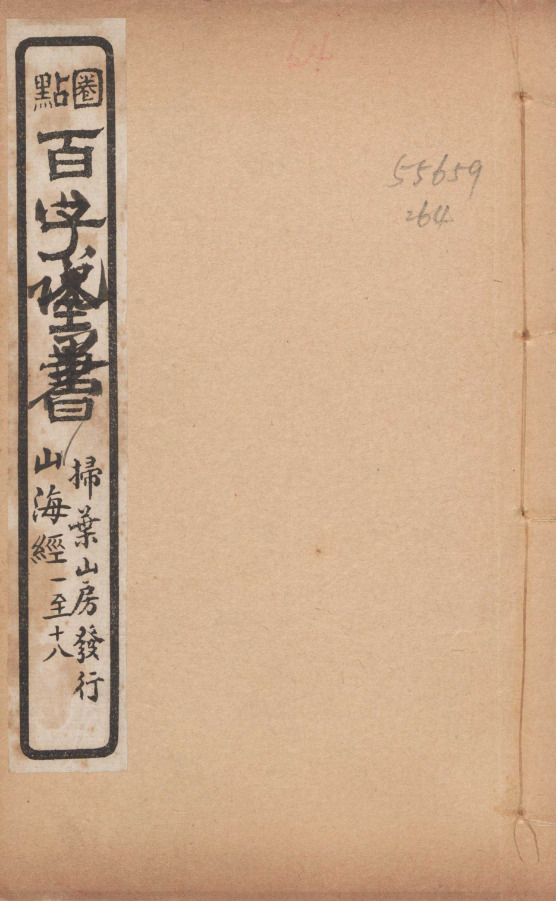 55659
264
圈點
百子全書
掃葉山房發行
山海經一至十八